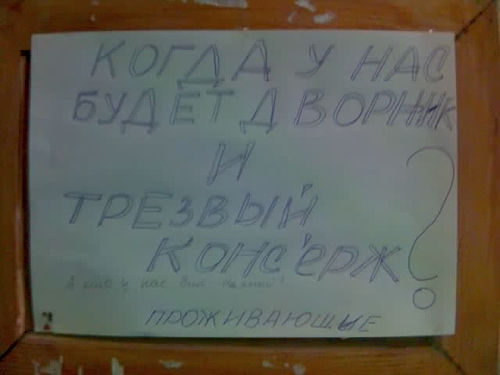 КОГДА У НАС
БУДЕТ ДВОРНИК
И
ТРЕЗВЫЙ
КОНСЪЕРЖ?
у нас
ПРОЖИВАЮЩИЕ